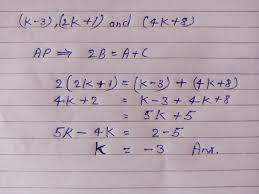 (k-3), (2k+1) and (4k+8)
AP ⟹ 2B = A+C
2(2k+1) = (k-3) + (4k+8)
4k+2 = k-3+4k+8
= 5k+5
5k-4k = 2-5
k = -3 Ans.